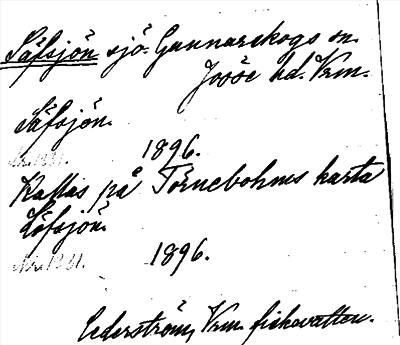 Säfsjön sjö. Gunnarskogs sn.
Jösse hd. Vrm.
Säfsjön.
1896.
Kallas på Törnebohms karta
Löfsjön.
1896.
Cederström, Vrm. fiskevatten.